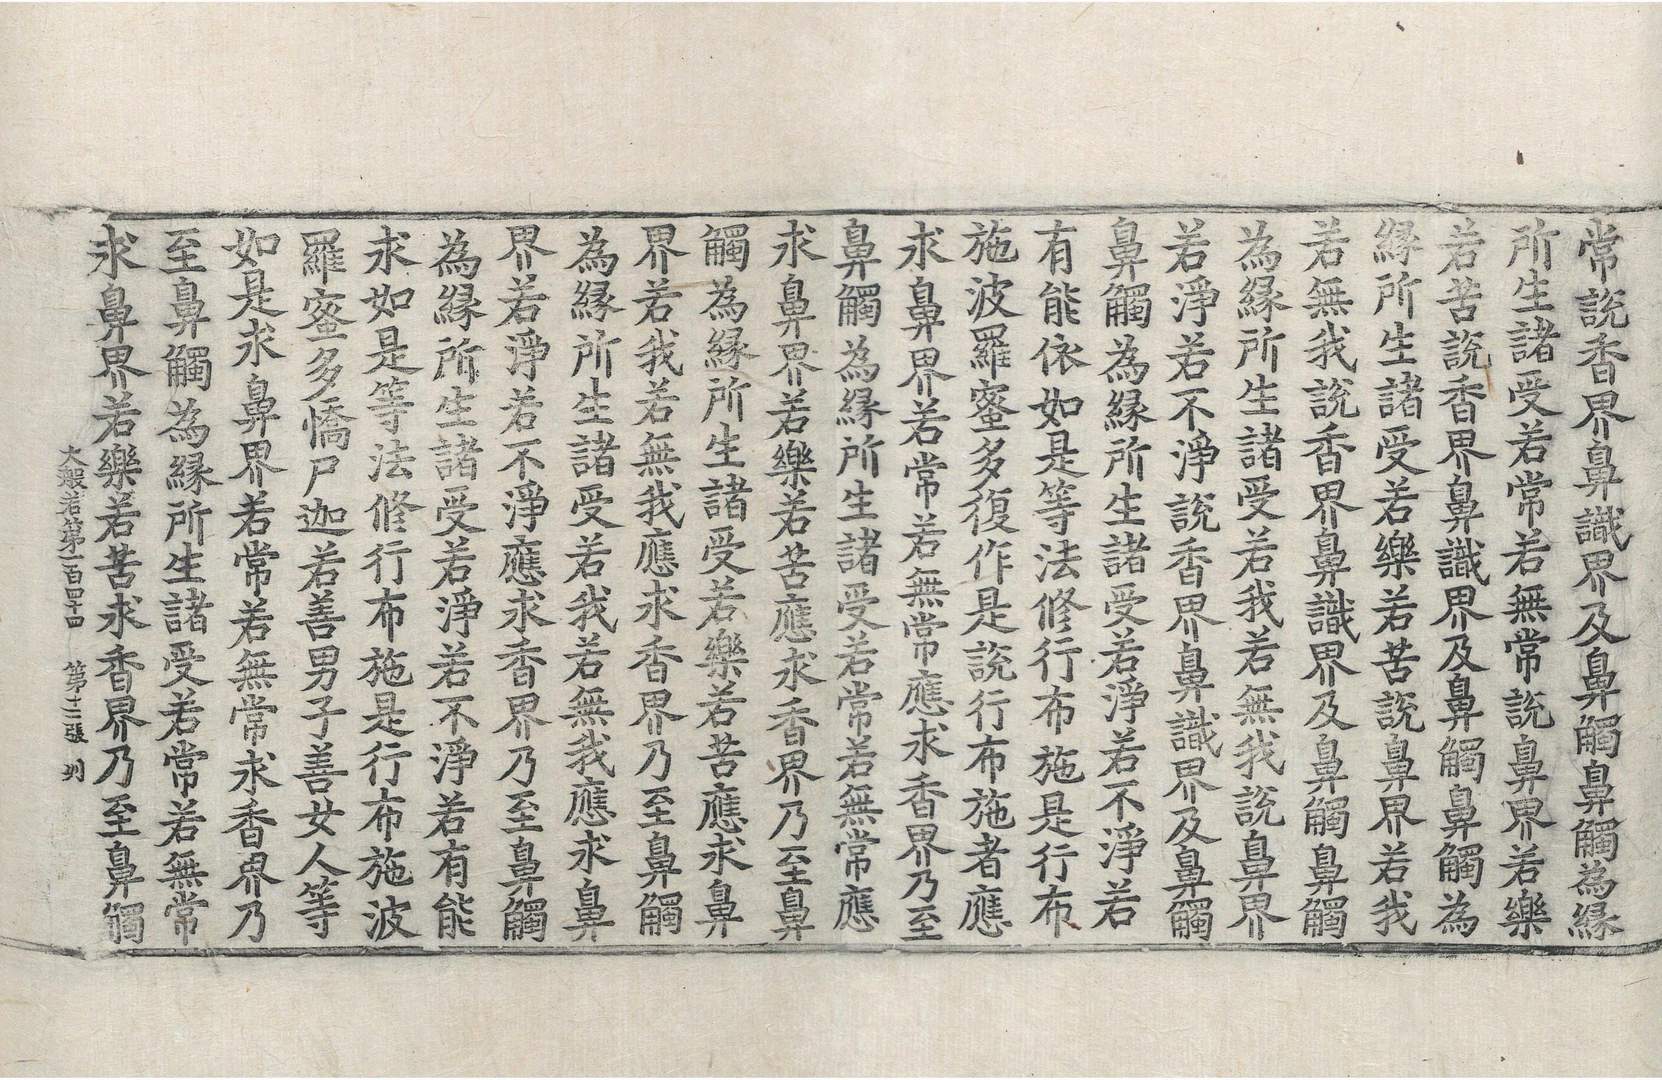 常說香界鼻識界及鼻觸鼻觸為緣
所生諸受若常若無常說鼻界若樂
若苦說香界鼻識界及鼻觸鼻觸為
緣所生諸受若樂若苦說鼻界若我
若無我說香界鼻識界及鼻觸鼻觸
為緣所生諸受若我若無我說鼻界
若淨若不淨說香界鼻識界及鼻觸
鼻觸為緣所生諸受若淨若不淨若
有能依如是等法修行布施是行布
施波羅蜜多復作是說行布施者應
求鼻界若常若無常應求香界乃至
鼻觸為緣所生諸受若常若無常應
求鼻界若樂若苦應求香界乃至鼻
觸為緣所生諸受若樂若苦應求鼻
界若我若無我應求香界乃至鼻觸
為緣所生諸受若我若無我應求鼻
界若淨若不淨應求香界乃至鼻觸
為緣所生諸受若淨若不淨若有能
求如是等法修行布施是行布施波
羅蜜多憍尸迦若善男子善女人等
如是求鼻界若常若無常求香界乃
至鼻觸為緣所生諸受若常若無常
求鼻界若樂若苦求香界乃至鼻觸
大般若第一百四十四 第十二張 列